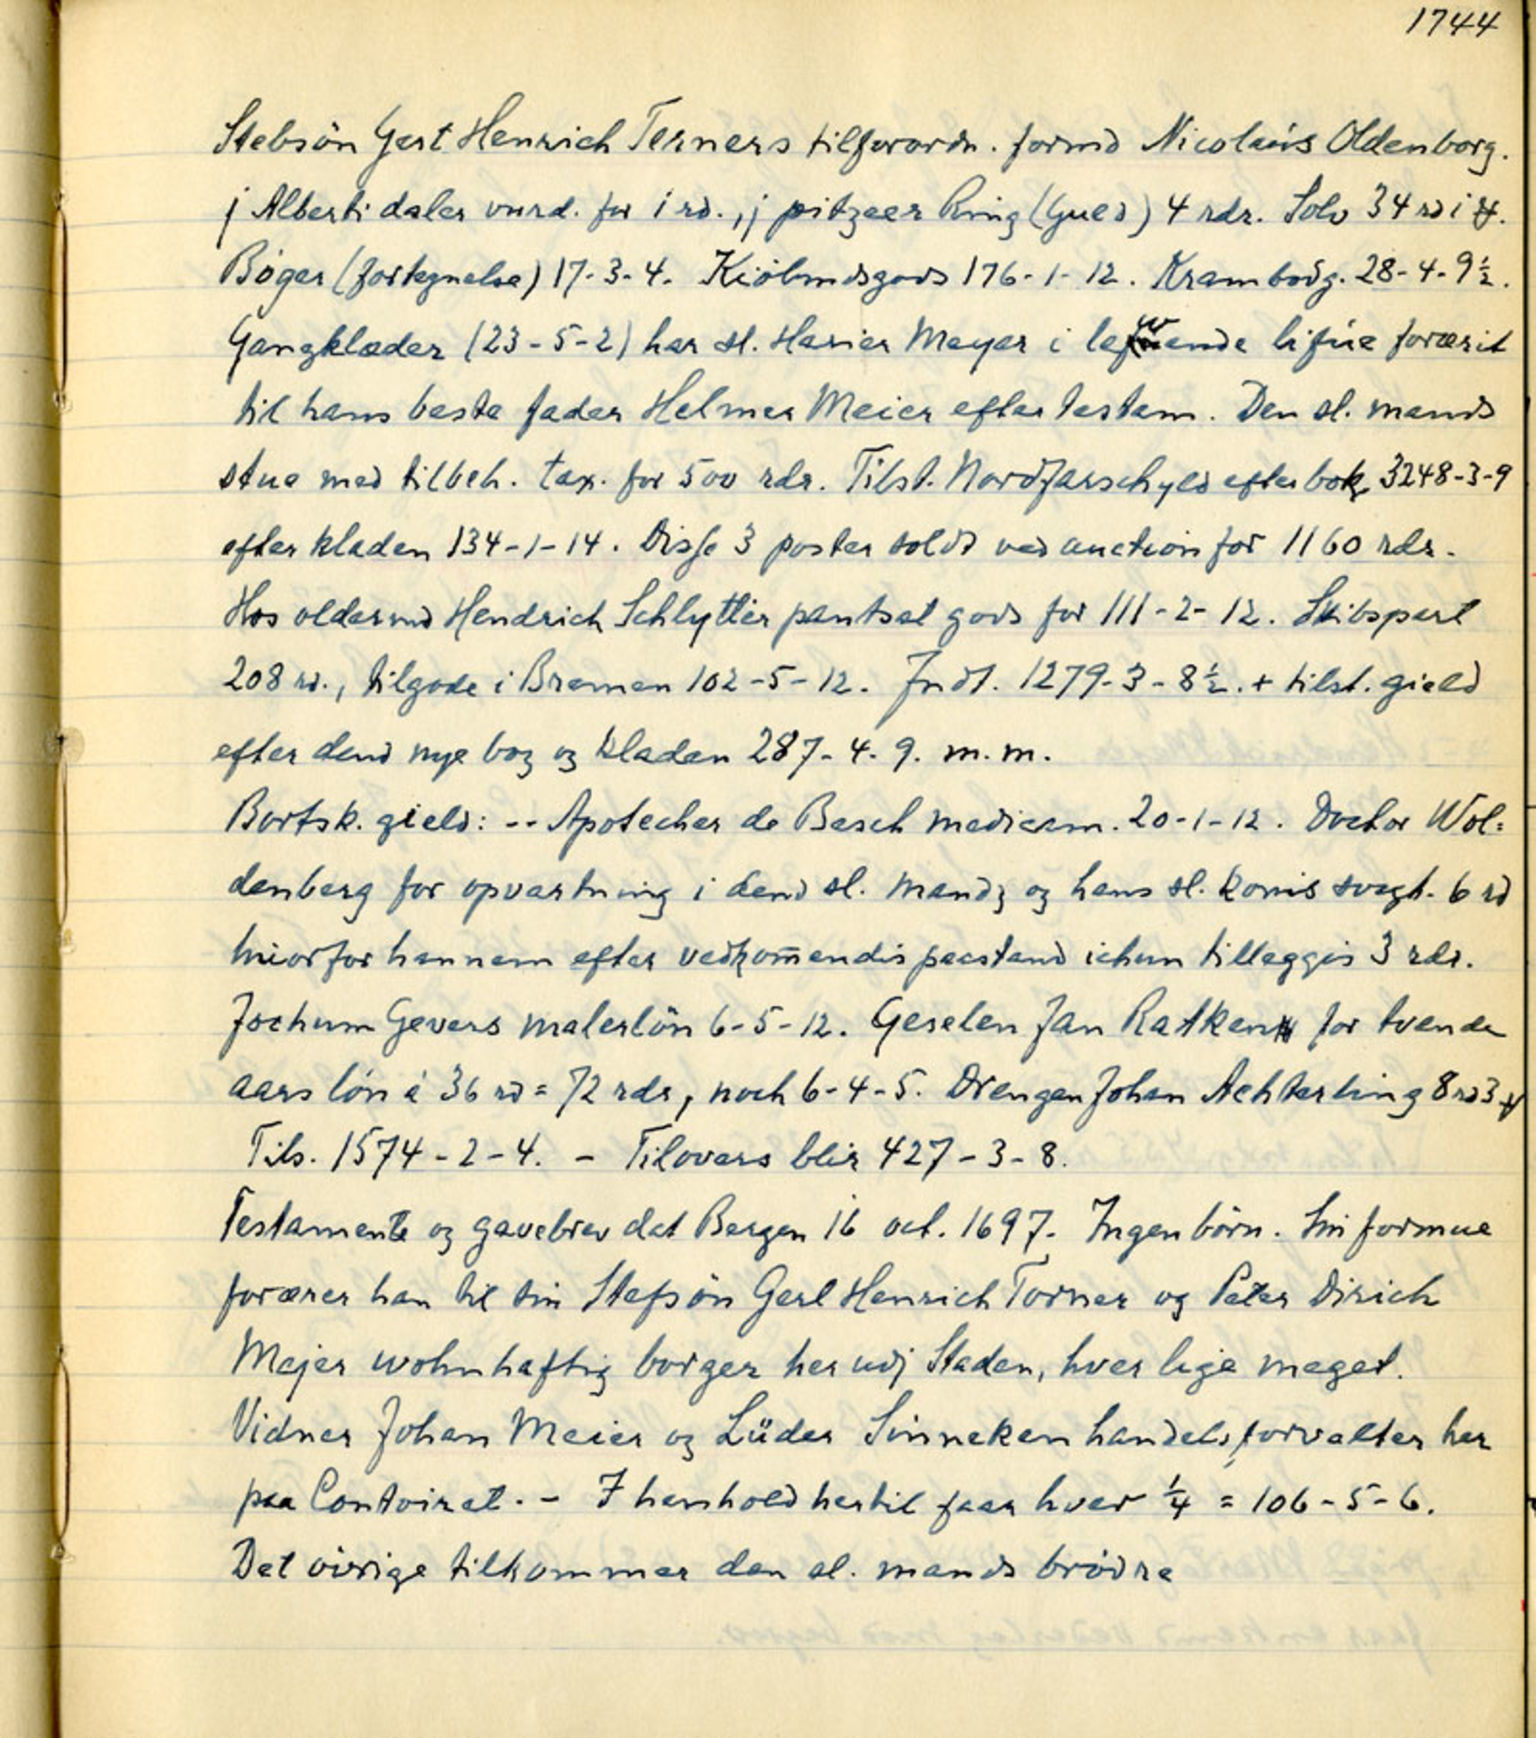 1744
Stebsön Gert Henrich Terners tilforordn. formd Nicolaus Oldenborg.
j Alberti daler vurd. for 1 rd., j pitzeer Ring (Gued) 4 rdr. Solv 34 rd 1 ℔.
Bøger (fortegnelse) 17-3-4. Kiöbmdsgods 176-1-12. Krambodg. 28-4-9½.
Gangklæder (23-5-2) har sl. Harier Meyer i lefwende lifue forærit
til hans beste fader Helmer Meier efter testam. Den sl. mands
stue med tilbeh. tax. for 500 rdr. Tilst. Nordfarschyld efter bok 3248-3-9
efter kladen 134-1-14. Disse 3 poster soldt ved auction for 1160 rdr.
Hos oldermd Hendrich Schlytter pantsat gods for 111-2-12. Skibspart
208 rd., tilgode i Bremen 102-5-12. Jndt. 1279-3-8½. + tilst. gield
efter dend nye bog og kladen 287-4-9. m.m.
Bortsk. gield: -- Apotecher de Besch medicam. 20-1-12. Doctor Wol=
denberg for opvartning i dend sl. mands og hans sl. konis svagh. 6 rd
hvorfor hannem efter vedkom̄endis paastand ichun tilleggis 3 rdr.
Jochum Gevers malerlön 6-5-12. Geselen Jan Ratken for tvende
aars lön á 36 rd = 72 rdr, noch 6-4-5. Drengen Johan Achterling 8 rd 3 ℔
Tils. 1574-2-4. - Tilovers blir 427-3-8.
Testamente og gavebrev dat Bergen 16 oct. 1697. Ingen börn. Sin formue
forærer han til sin Stefsön Gert Henrich Torner og Peter Dirich
Mejer wohnhaftig borger her udj Staden, hver lige meget.
Vidner Johan Meier og Lüder Sinneken handels forvalter her
paa Contoiret. - I henhold hertil faar hver ¼ = 106-5-6.
Det övrige tilkommer den sl. mands brödre